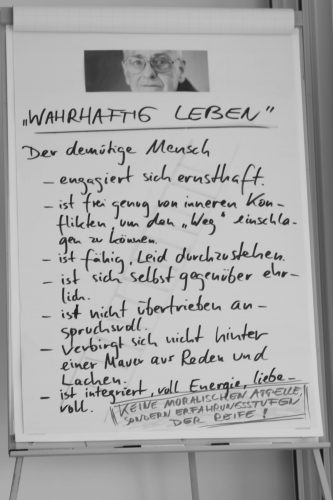 „WAHRHAFTIG LEBEN"
Der demütige Mensch
– engagiert sich ernsthaft.
– ist frei genug von inneren Kon-
flikten, um den „Weg" einschla-
gen zu können.
– ist fähig, Leid durchzustehen.
– ist sich selbst gegenüber ehr-
lich.
– ist nicht übertrieben an-
spruchsvoll.
– verbirgt sich nicht hinter
einer Mauer aus Reden und
Lachen.
– ist integriert, voll Energie, liebe-
voll.
KEINE MORALISCHEN APPELLE,
SONDERN ERFAHRUNGSSTUFEN
DER REIFE!